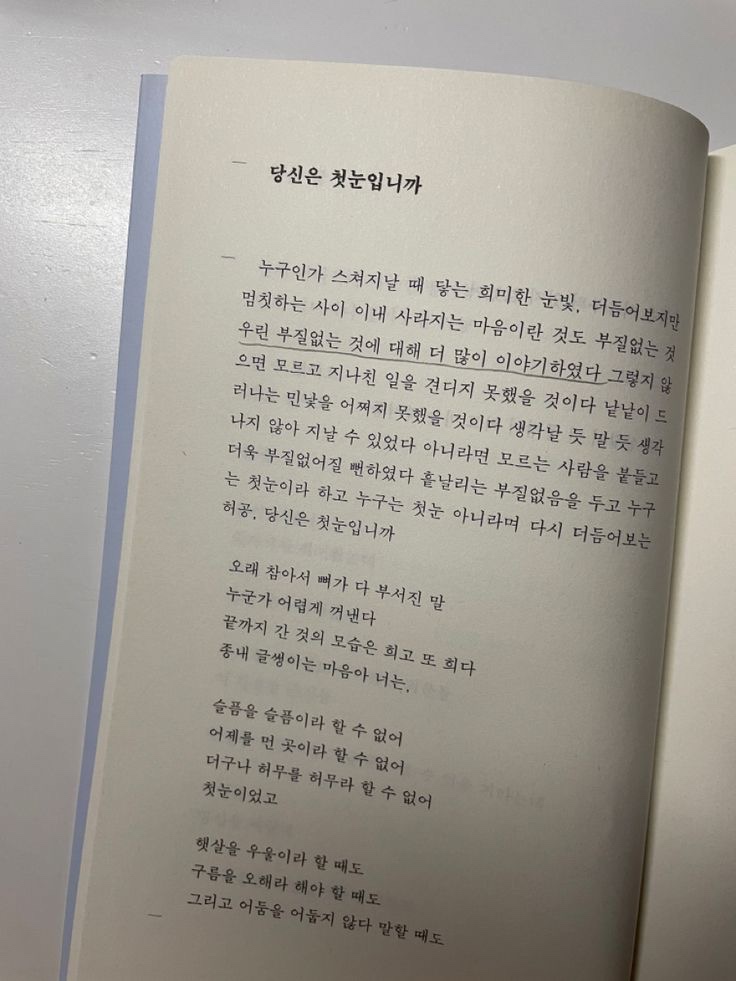 당신은 첫눈입니까
누구인가 스쳐지날 때 닿는 희미한 눈빛, 더듬어보지만
멈칫하는 사이 이내 사라지는 마음이란 것도 부질없는 것
우린 부질없는 것에 대해 더 많이 이야기하였다 그렇지 않
으면 모르고 지나친 일을 견디지 못했을 것이다 낱낱이 드
러나는 민낯을 어쩌지 못했을 것이다 생각날 듯 말 듯 생각
나지 않아 지날 수 있었다 아니라면 모르는 사람을 붙들고
더욱 부질없어질 뻔하였다 흩날리는 부질없음을 두고 누구
는 첫눈이라 하고 누구는 첫눈 아니라며 다시 더듬어보는
허공, 당신은 첫눈입니까
오래 참아서 뼈가 다 부서진 말
누군가 어렵게 꺼낸다
끝까지 간 것의 모습은 희고 또 희다
종내 글썽이는 마음아 너는,
슬픔을 슬픔이라 할 수 없어
어제를 먼 곳이라 할 수 없어
더구나 허무를 허무라 할 수 없어
첫눈이었고
햇살을 우울이라 할 때도
구름을 오해라 해야 할 때도
그리고 어둠을 어둡지 않다 말할 때도